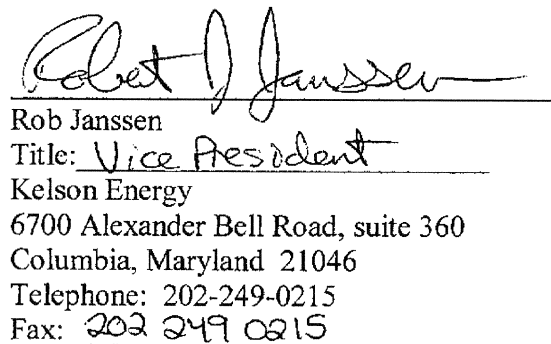 Robert J Janssen
Rob Janssen
Title: Vice President
Kelson Energy
6700 Alexander Bell Road, suite 360
Columbia, Maryland 21046
Telephone: 202-249-0215
Fax: 202 249 0215